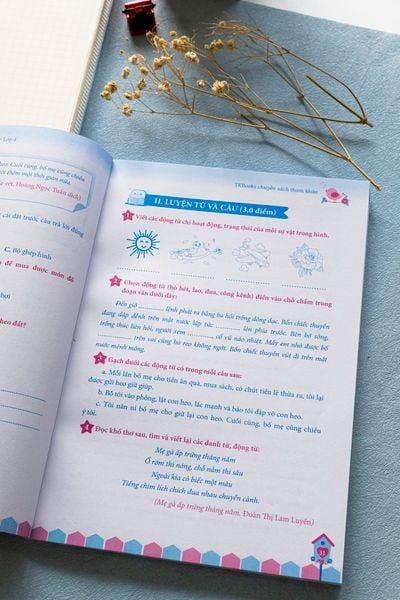 Lớp 4
học. Cuối cùng, bố mẹ cùng chiều
thêm một thời gian nữa.
Hoàng Ngọc Tuấn dịch)
cái đặt trước câu trả lời đúng
C. Bộ ghép hình
để mua được món đồ
hơi
heo đất?
TKBooks chuyên sách tham khảo
II. LUYỆN TỪ VÀ CÂU (3,0 điểm)
1 Viết các động từ chỉ hoạt động, trạng thái của mỗi sự vật trong hình.
2 Chọn động từ (hò hét, lao, đua, công kênh) điền vào chỗ chấm trong
đoạn văn dưới đây:
Đến giờ .......... lệnh phát ra bằng ba hồi trống dõng dạc. Bốn chiếc thuyền
đang dập dềnh trên mặt nước lập tức .......... lên phía trước. Bên bờ sông,
trống thúc liên hồi, người xem .......... cổ vũ náo nhiệt. Mấy em nhỏ được bố
.......... trên vai cũng hò reo không ngớt. Bốn chiếc thuyền vút đi trên mặt
nước mênh mông.
3 Gạch dưới các động từ có trong mỗi câu sau:
a. Mỗi lần bố mẹ cho tiền ăn quà, mua sách, có chút tiền lẻ thừa ra, tôi lại
được gửi heo giữ giúp.
b. Bố tôi vào phòng, lật con heo, lắc mạnh và bảo tôi đập vỡ con heo.
c. Tôi năn nỉ bố mẹ cho giữ lại con heo. Cuối cùng, bố mẹ cùng chiều
ý tôi.
4 Đọc khổ thơ sau, tìm và viết lại các danh từ, động từ:
Mẹ gà ấp trứng tháng năm
Ổ rơm thì nóng, chỗ nằm thì sâu
Ngoài kia cỏ biếc một màu
Tiếng chim lích chích đua nhau chuyền cành.
(Mẹ gà ấp trứng tháng năm, Đoàn Thị Lam Luyến)